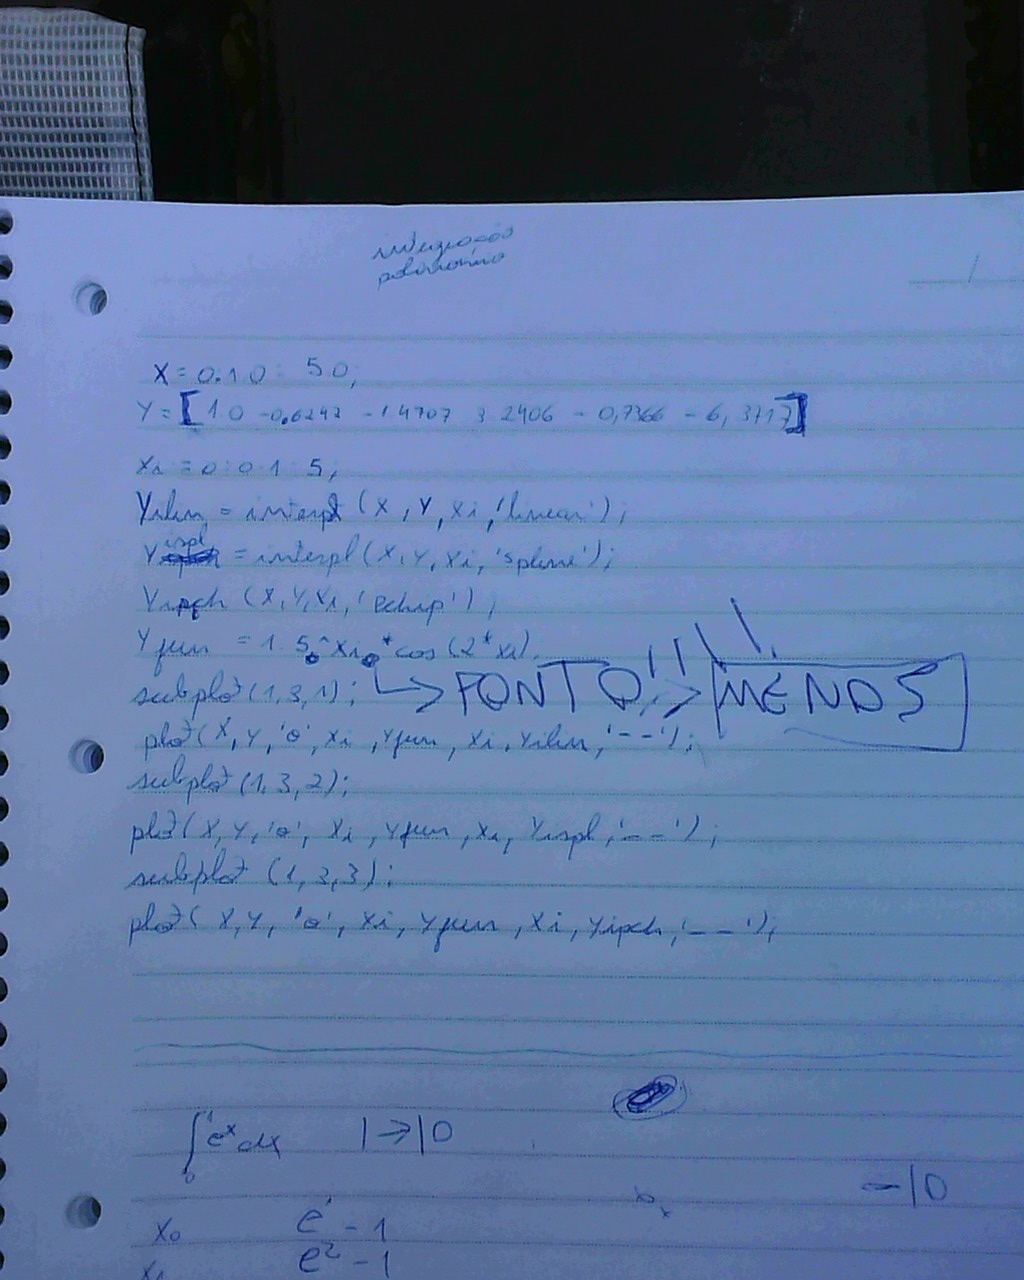 integração
polinômio
X = 0:1.0 : 5.0;
Y = [1.0 -0.6242 -1.4707 3.2406 -0,7366 -6,3717]
Xi = 0:0.1:5;
Yilin = interp1(X,Y,Xi,'linear');
Yispl = interp1(X,Y,Xi,'spline');
Yipch (X,Y,Xi,'pchip');
Yfun = 1.5.^Xi.*cos(2*xi);
subplot(1,3,1); → PONTO!!!! > MENOS
plot(X,Y,'o',Xi,Yfun,Xi,Yilin,'--');
subplot(1,3,2);
plot(X,Y,'o',Xi,Yfun,Xi,Yispl,'--');
subplot (1,3,3);
plot(X,Y,'o',Xi,Yfun,Xi,Yipch,'--');
∫₀¹ eˣ dx 1→10
-10
X₀ e¹ - 1
X₁ e² - 1